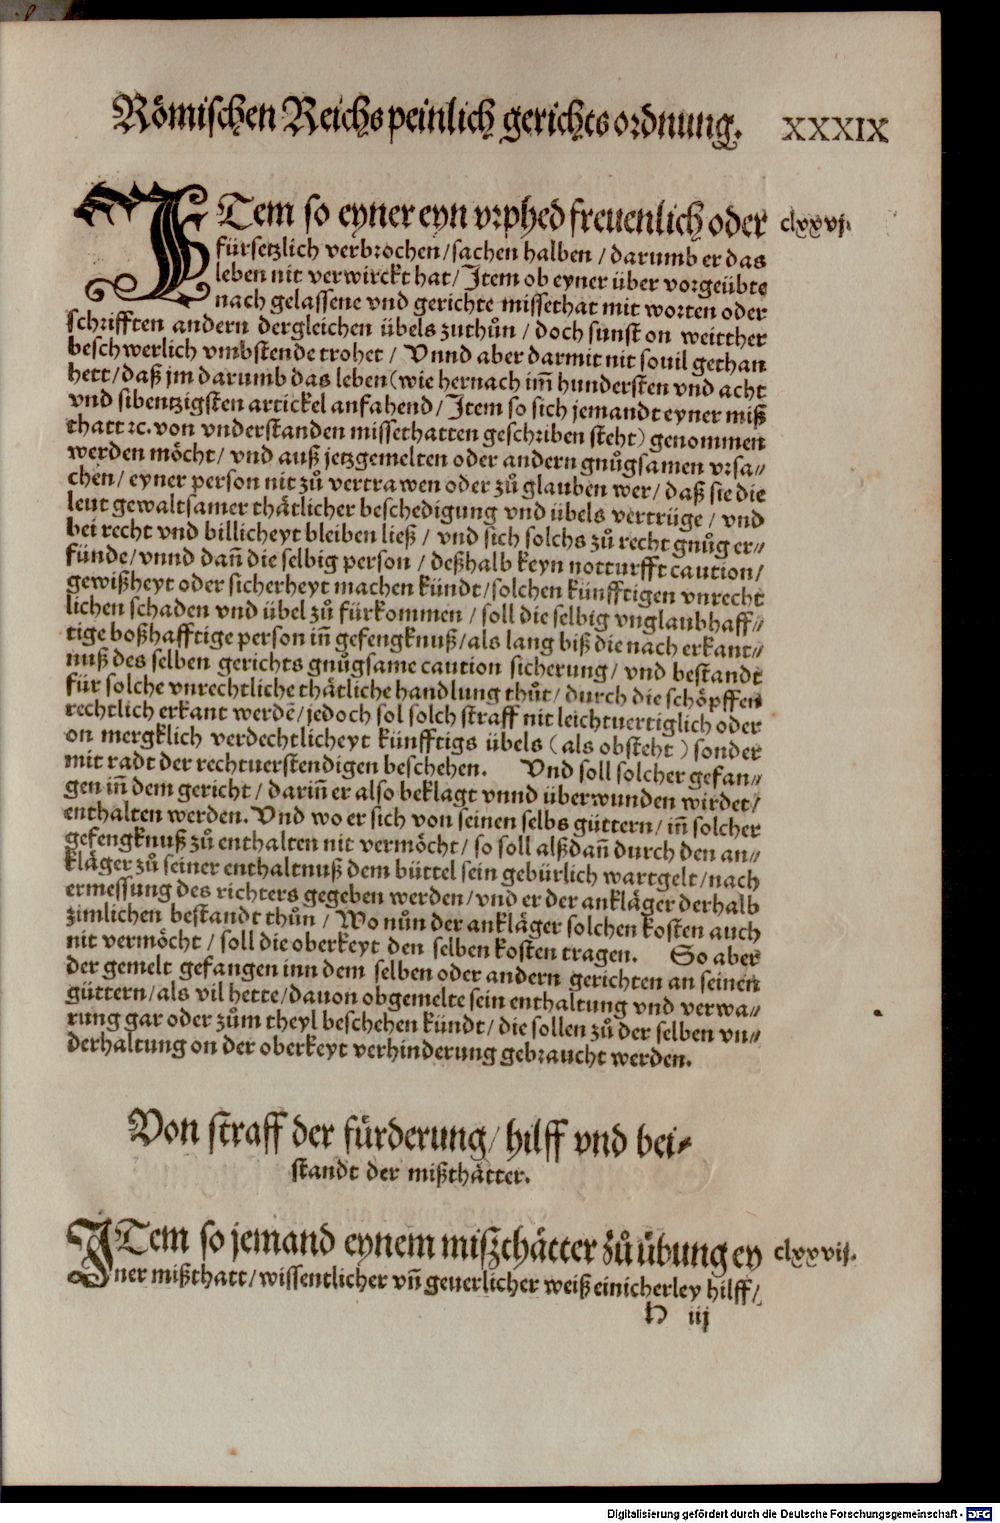 Römischen Reichs peinlich gerichts ordnung. XXXIX
ITem so eyner eyn vrphed freuenlich oder clxxvj.
fürsetzlich verbrochen/sachen halben / darumb er das
leben nit verwirckt hat/ Item ob eyner über vorgeübte
nach gelassene vnd gerichte missethat mit worten oder
schrifften andern dergleichen übels zuthůn / doch sunst on weitther
beschwerlich vmbstende trohet / Vnnd aber darmit nit souil gethan
hett/ daß jm darumb das leben (wie hernach im̃ hundersten vnd acht
vnd sibentzigsten artickel anfahend/ Item so sich jemandt eyner miß
thatt ꝛc. von vnderstanden missethatten geschriben steht) genommen
werden möcht/ vnd auß jetzgemelten oder andern gnůgsamen vrsa⸗
chen/ eyner person nit zů vertrawen oder zů glauben wer/ daß sie die
leut gewaltsamer thätlicher beschedigung vnd übels vertrüge / vnd
bei recht vnd billicheyt bleiben ließ / vnd sich solchs zů recht gnůg er⸗
fünde/ vnnd dañ die selbig person / deßhalb keyn notturfft caution/
gewißheyt oder sicherheyt machen kündt/ solchen künfftigen vnrecht
lichen schaden vnd übel zů fürkommen / soll die selbig vnglaubhaff⸗
tige boßhafftige person iñ gefengknuß/ als lang biß die nach erkant⸗
nuß des selben gerichts gnůgsame caution sicherung/ vnd bestandt
für solche vnrechtliche thätliche handlung thůt/ durch die schöpffen
rechtlich erkant werdẽ/ jedoch sol solch straff nit leichtuertiglich oder
on mergklich verdechtlicheyt künfftigs übels (als obsteht) sonder
mit radt der rechtuerstendigen beschehen. Vnd soll solcher gefan⸗
gen iñ dem gericht/ dariñ er also beklagt vnnd überwunden wirdet/
enthalten werden. Vnd wo er sich von seinen selbs güttern/ iñ solcher
gefengknuß zů enthalten nit vermöcht/ so soll alßdañ durch den an⸗
kläger zů seiner enthaltnuß dem büttel sein gebürlich wartgelt/ nach
ermessung des richters gegeben werden/ vnd er der ankläger derhalb
zimlichen bestandt thůn / Wo nůn der ankläger solchen kosten auch
nit vermöcht / soll die oberkeyt den selben kosten tragen. So aber
der gemelt gefangen inn dem selben oder andern gerichten an seinen
güttern/ als vil hette/ dauon obgemelte sein enthaltung vnd verwa⸗
rung gar oder zům theyl beschehen kündt/ die sollen zů der selben vn⸗
derhaltung on der oberkeyt verhinderung gebraucht werden.
Von straff der fürderung/ hilff vnd bei⸗
standt der mißthätter.
ITem so jemand eynem mißthätter zů übung ey clxxvij.
ner mißthatt/ wissentlicher vñ geuerlicher weiß einicherley hilff/
H iij
Digitalisierung gefördert durch die Deutsche Forschungsgemeinschaft - DFG